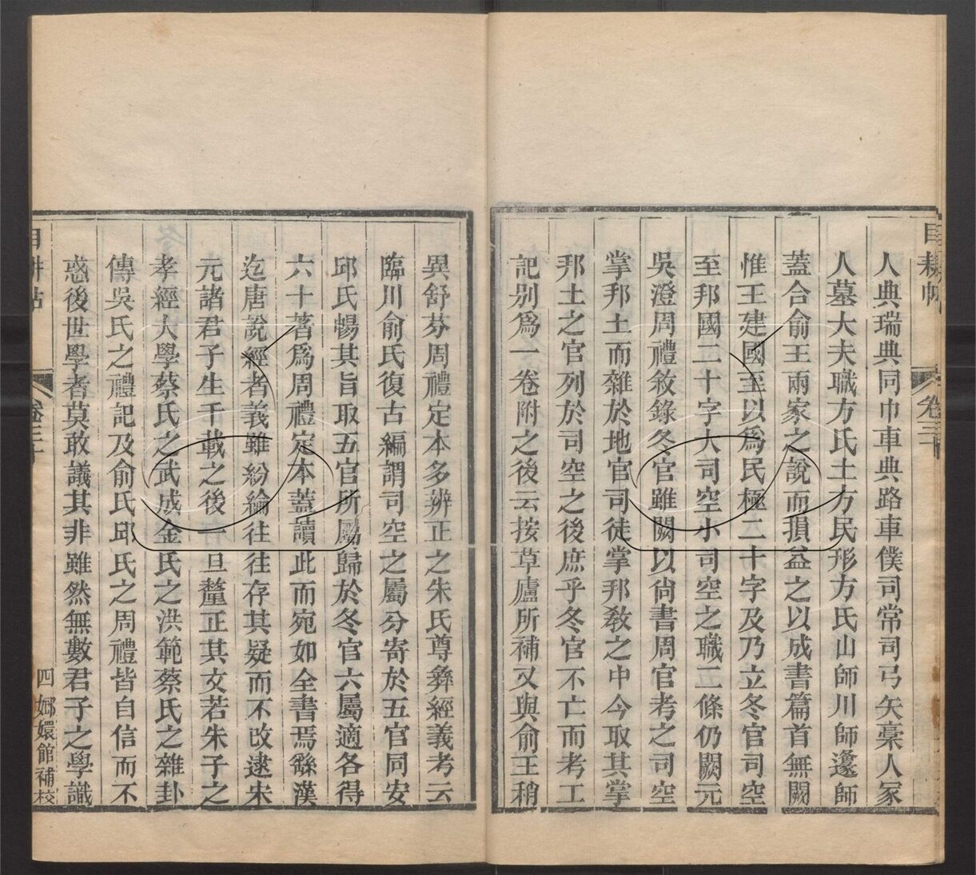 目耕帖
卷三十
人典瑞典同巾車典路車僕司常司弓矢稾人冢
人墓大夫職方氏土方民形方氏山師川師邍師
蓋合俞王兩家之說而損益之以成書篇首無闕
惟王建國至以爲民極二十字及乃立冬官司空
至邦國二十字大司空小司空之職二條仍闕元
吳澄周禮敘錄冬官雖闕以尙書周官考之司空
掌邦土而雜於地官司徒掌邦敎之中今取其掌
邦土之官列於司空之後庶乎冬官不亡而考工
記別爲一卷附之後云按草廬所補又與俞王稍
異舒芬周禮定本多辨正之朱氏尊彝經義考云
臨川俞氏復古編謂司空之屬分寄於五官同安
邱氏暢其旨取五官所屬歸於冬官六屬適各得
六十著爲周禮定本蓋讀此而宛如全書焉繇漢
迄唐說經者義雖紛綸往往存其疑而不改逮宋
元諸君子生千載之後一旦釐正其文若朱子之
孝經大學蔡氏之武成金氏之洪範蔡氏之雜卦
傳吳氏之禮記及俞氏邱氏之周禮皆自信而不
惑後世學者莫敢議其非雖然無數君子之學識
目耕帖
卷三十
四
嫏嬛館補校